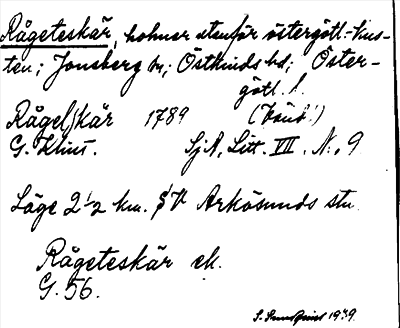 Rågeteskär, holmar utanför östergötl.-kus-
ten; Jonsberg sn; Östkinds hd; Öster-
götl. l.
Rågel(s)kär 1789
G. Klint. SjA, Litt. VII. N:o 9
Läge 2 1/2 km. SV Arkösunds stn.
Rågeteskär ek.
G. 56.
1939